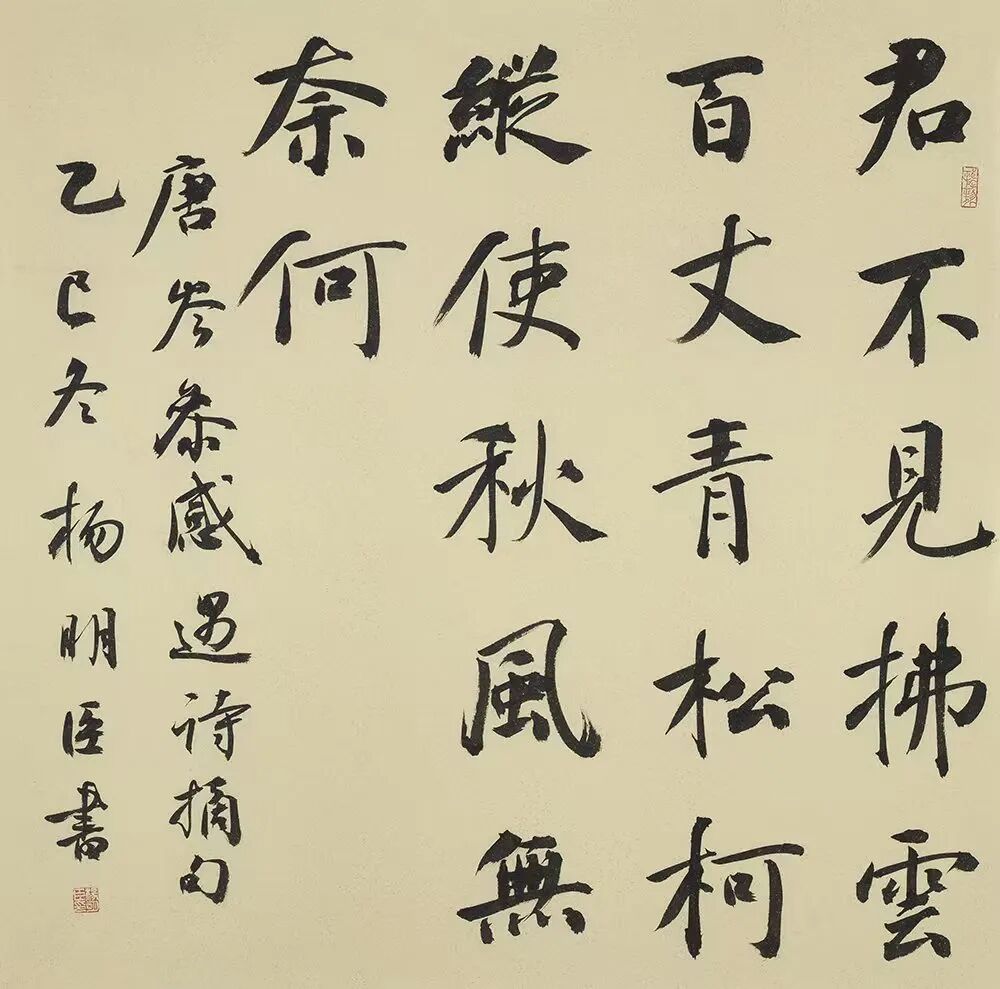 君不見拂雲
百丈青松柯
縱使秋風無
奈何
唐岑参感遇诗摘句
乙巳冬杨明臣書